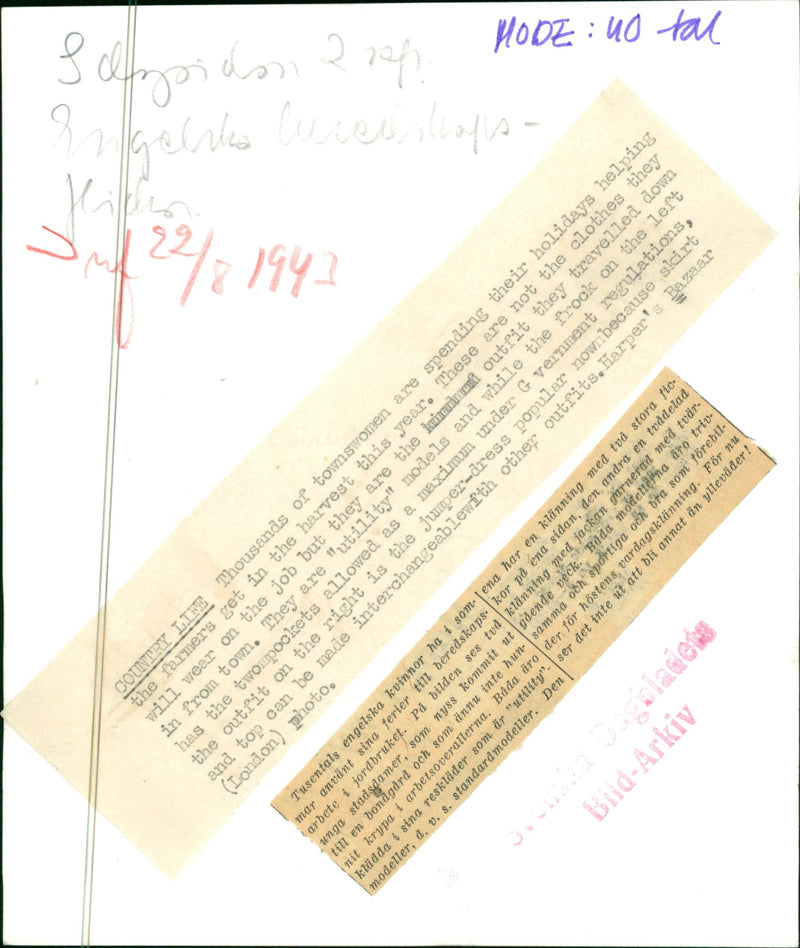 MODE: 40 tal
2 sep.
Engelska
flickor.
22/8 1943
COUNTRY LIFE Thousands of townswomen are spending their holidays helping
the farmers get in the harvest this year. These are not the clothes they
will wear on the job but they are the outfit they travelled down
in from town. They are "utility" models and while the frock on the left
has the twompockets allowed as a maximum under G vernment regulations,
the outfit on the right is the jumper-dress popular nownbecause skirt
and top can be made interchangeablewith other outfits.Harper's Bazaar
(London) photo.
Tusentals engelska kvinnor ha i som-
mar använt sina ferier till beredskaps-
arbete i jordbruket. På bilden ses två
unga stadsdamer, som nyss kommit ut
till en bondgård och som ännu inte hun-
nit krypa i arbetsoverallerna. Båda äro
klädda i sina reskläder som är "utility"-
modeller, d. v. s. standardmodeller. Den
ena har en klänning med två stora fic-
kor på ena sidan, den andra en tvådelad
klänning med jackan garnerad med tvär-
gående veck. Båda modellerna äro triv-
samma och sportiga och bra som förebil-
der för höstens vardagsklänning. För nu
ser det inte ut att bli annat än ylleväder!
Svenska Dagbladets
Bild-Arkiv